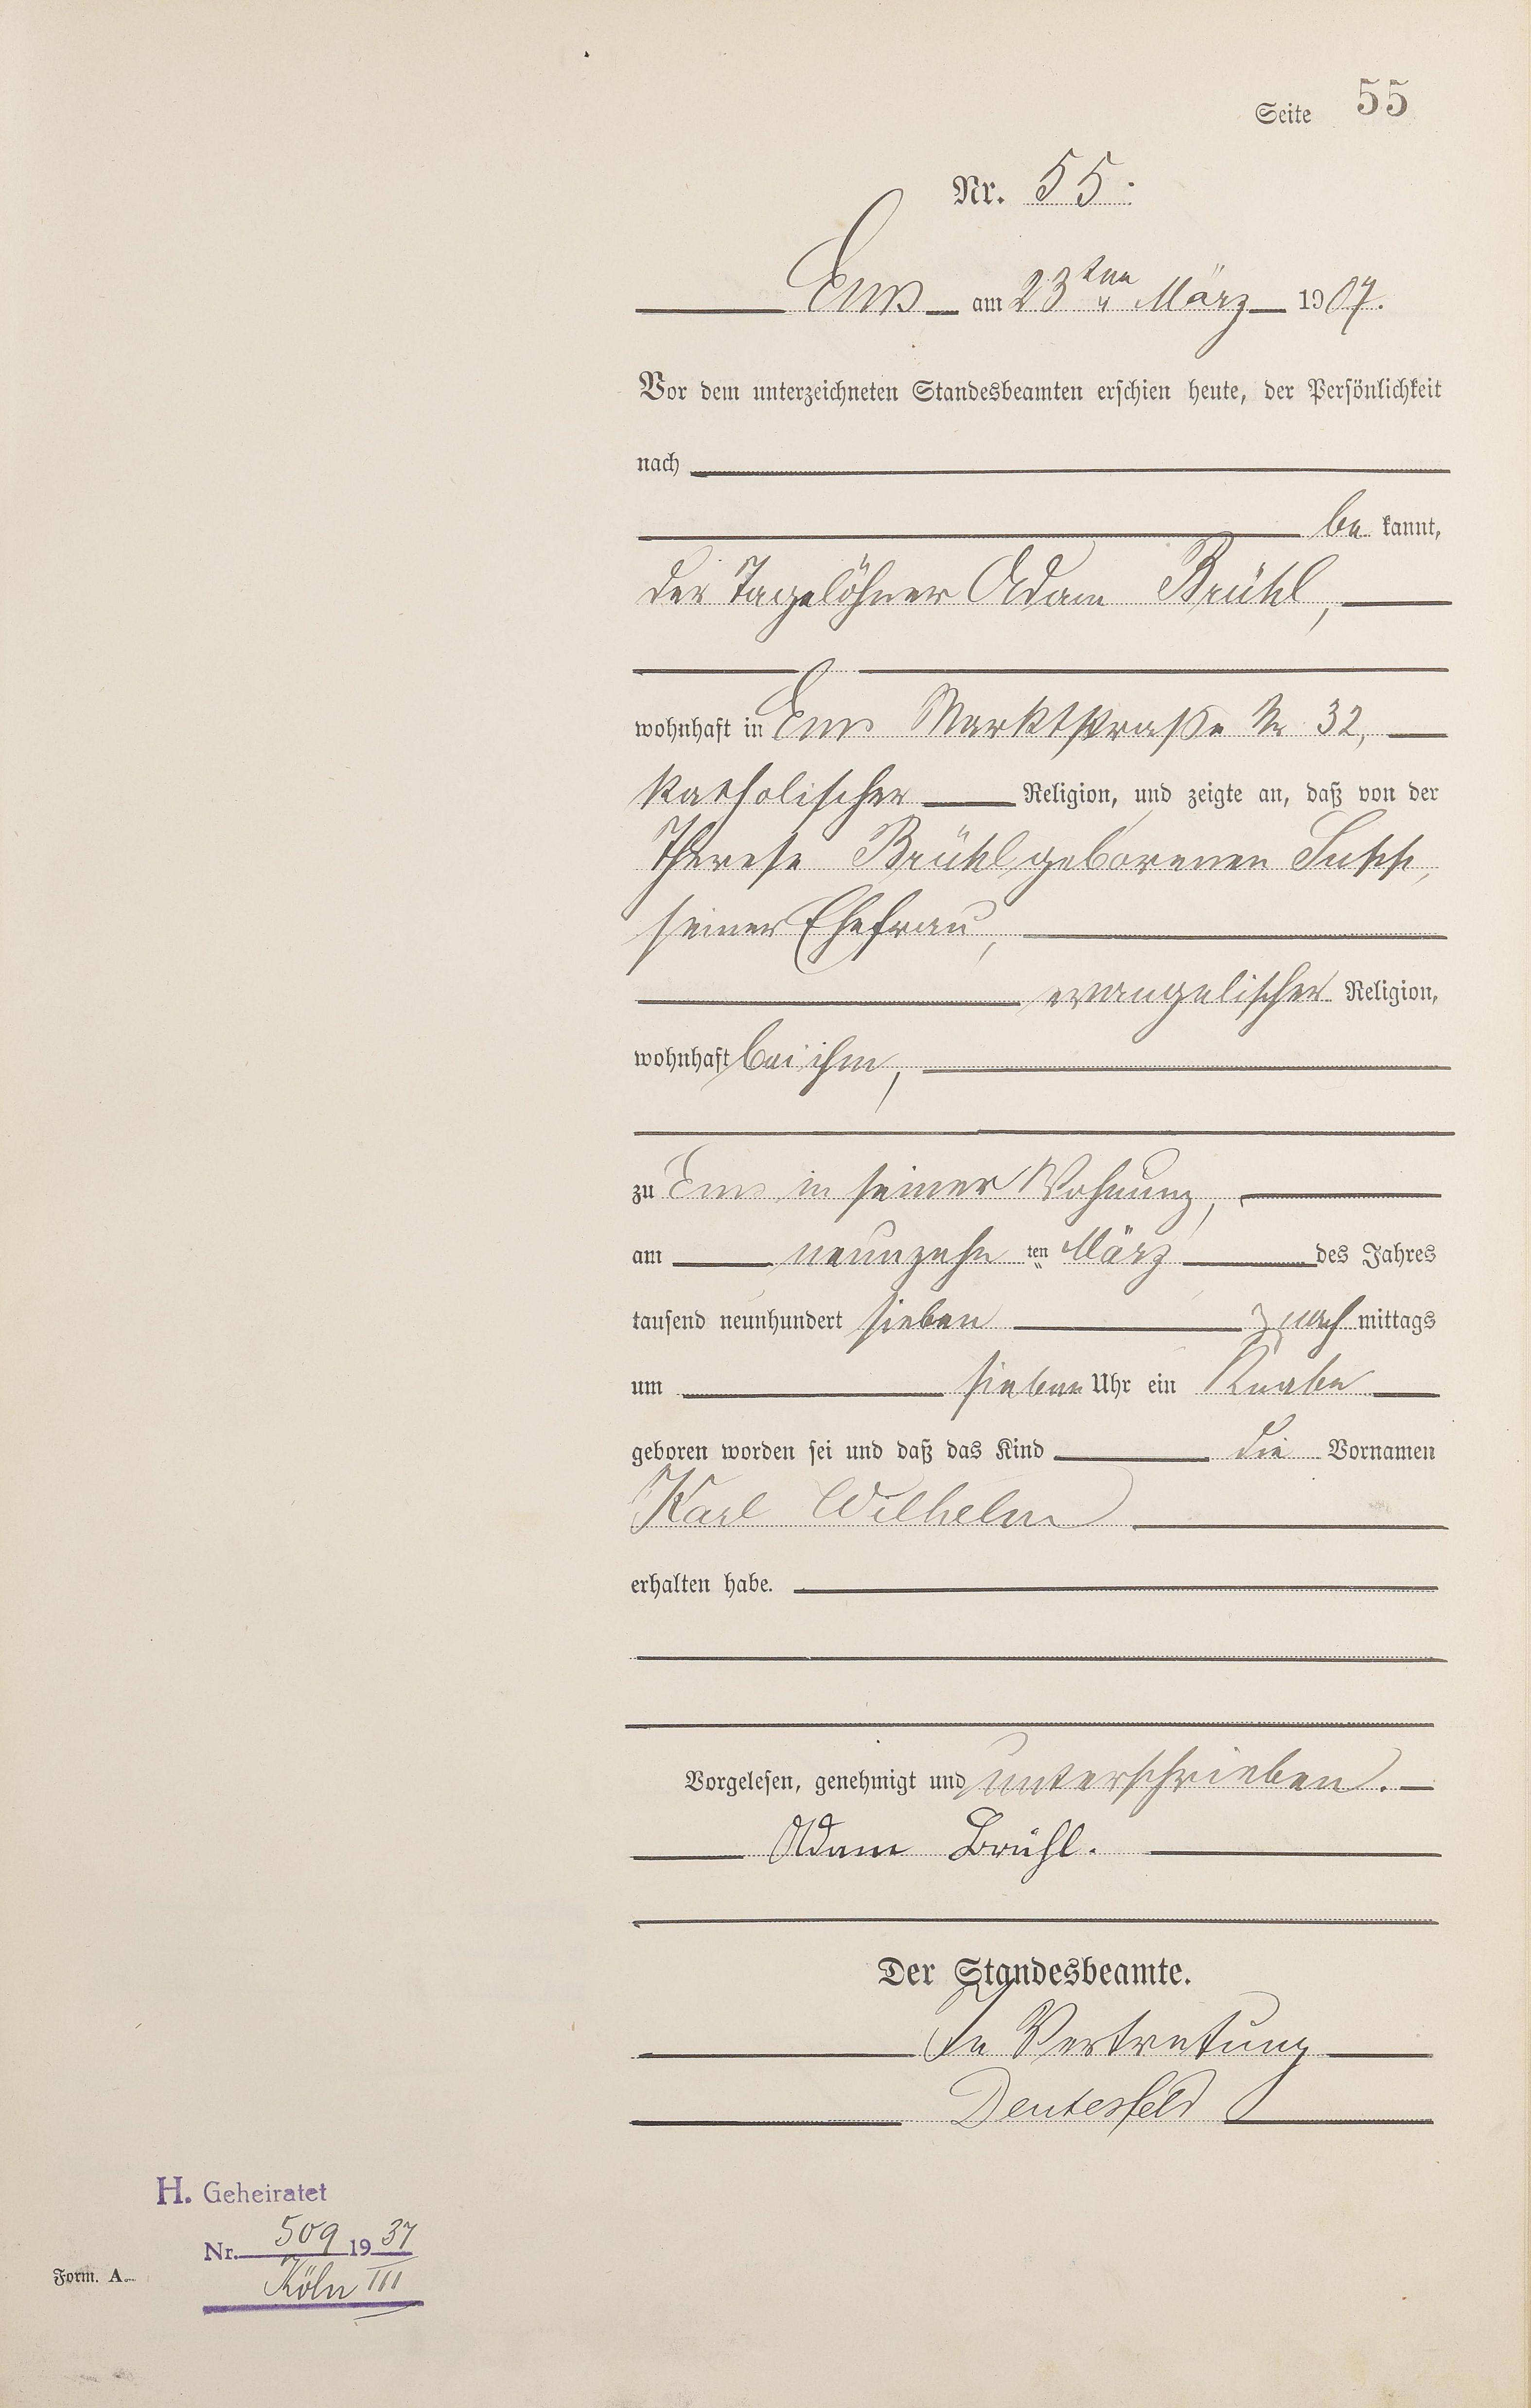 Seite 55
Nr. 55.
Ems am 23ten März 1907.
Vor dem unterzeichneten Standesbeamten erschien heute, der Persönlichkeit
nach
be kannt,
der Tagelöhner Adam Brühl,
wohnhaft in Ems Marktstraße Nr 32,
katholischer Religion, und zeigte an, daß von der
Therese Brühl geborenen
seiner Ehefrau,
evangelischer Religion,
wohnhaft bei ihm,
zu Ems in seiner Wohnung,
am neunzehn ten März des Jahres
tausend neunhundert sieben nach mittags
um sieben Uhr ein Knabe
geboren worden sei und daß das Kind die Vornamen
Karl Wilhelm
erhalten habe.
Vorgelesen, genehmigt und unterschrieben.
Adam Brühl.
Der Standesbeamte.
In Vertretung
Deutesfeld
H. Geheiratet
Nr. 509 1937
Köln III
Form. A.